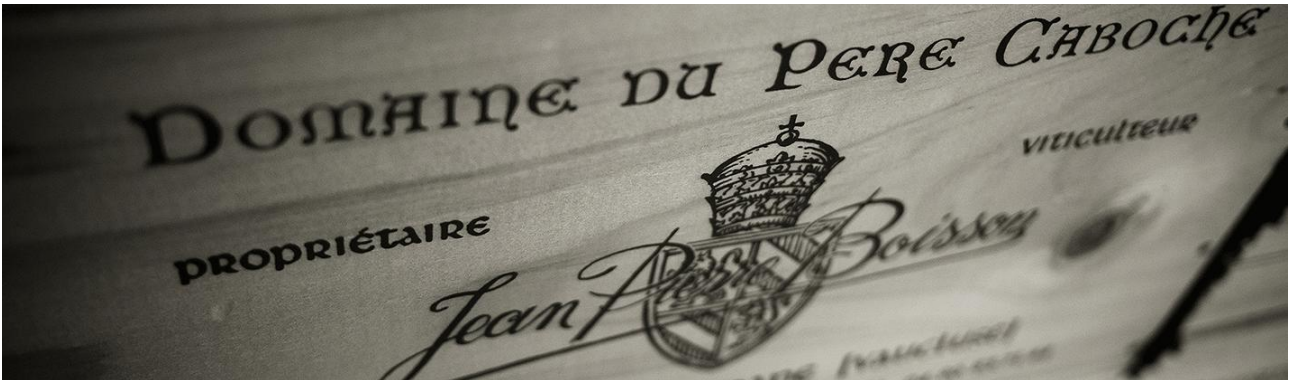 Domaine du Pere Caboche
propriétaire viticulteur
Jean Pierre Boisson
(Vaucluse)